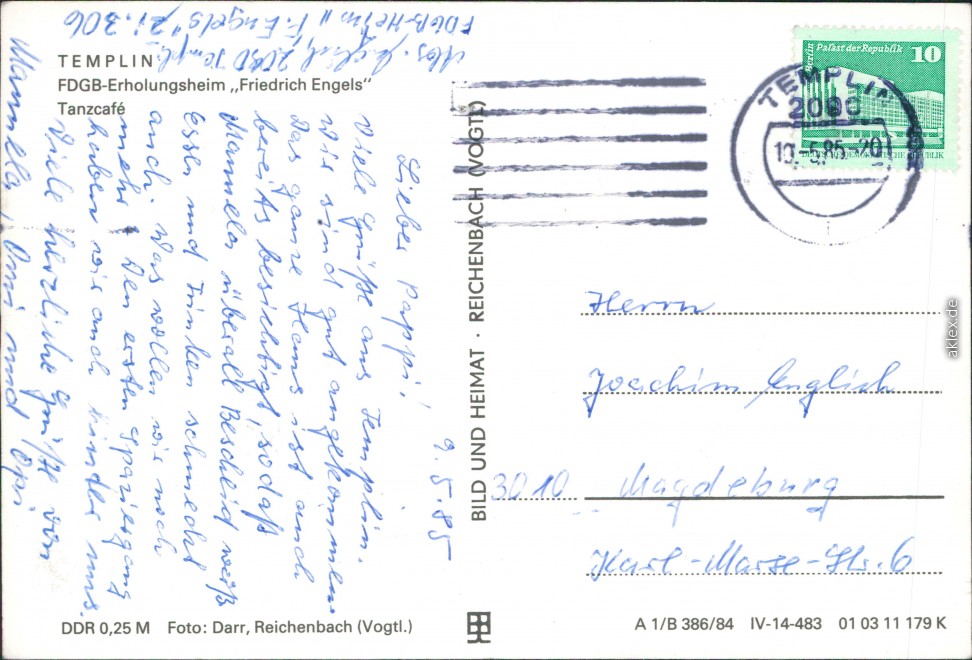 TEMPLIN
FDGB-Erholungsheim „Friedrich Engels“
Tanzcafé
9.5.85
Lieber Pappi!
Viele Grüße aus Templin.
Wir sind gut angekommen
Das ganze Haus ist auch
bereits besichtigt, sodaß
Manuela überall Bescheid weiß
Essen und Trinken schmeckt
auch. Was wollen wir noch
mehr. Den ersten Spaziergang
haben wir auch hinter uns.
Viele herzliche Grüße von
Manuela, Omi und Opi
2090 Templin
FDGB-Heim „F. Engels“ Zi. 306
BILD UND HEIMAT · REICHENBACH (VOGTL)
Berlin Palast der Republik 10
TEMPLIN
2090
10.-5.85.-20
Herrn
Joachim Englich
3010 Magdeburg
Karl-Marx-Str. 6
DDR 0,25 M Foto: Darr, Reichenbach (Vogtl.)
A 1/B 386/84 IV-14-483 01 03 11 179 K
aklex.de